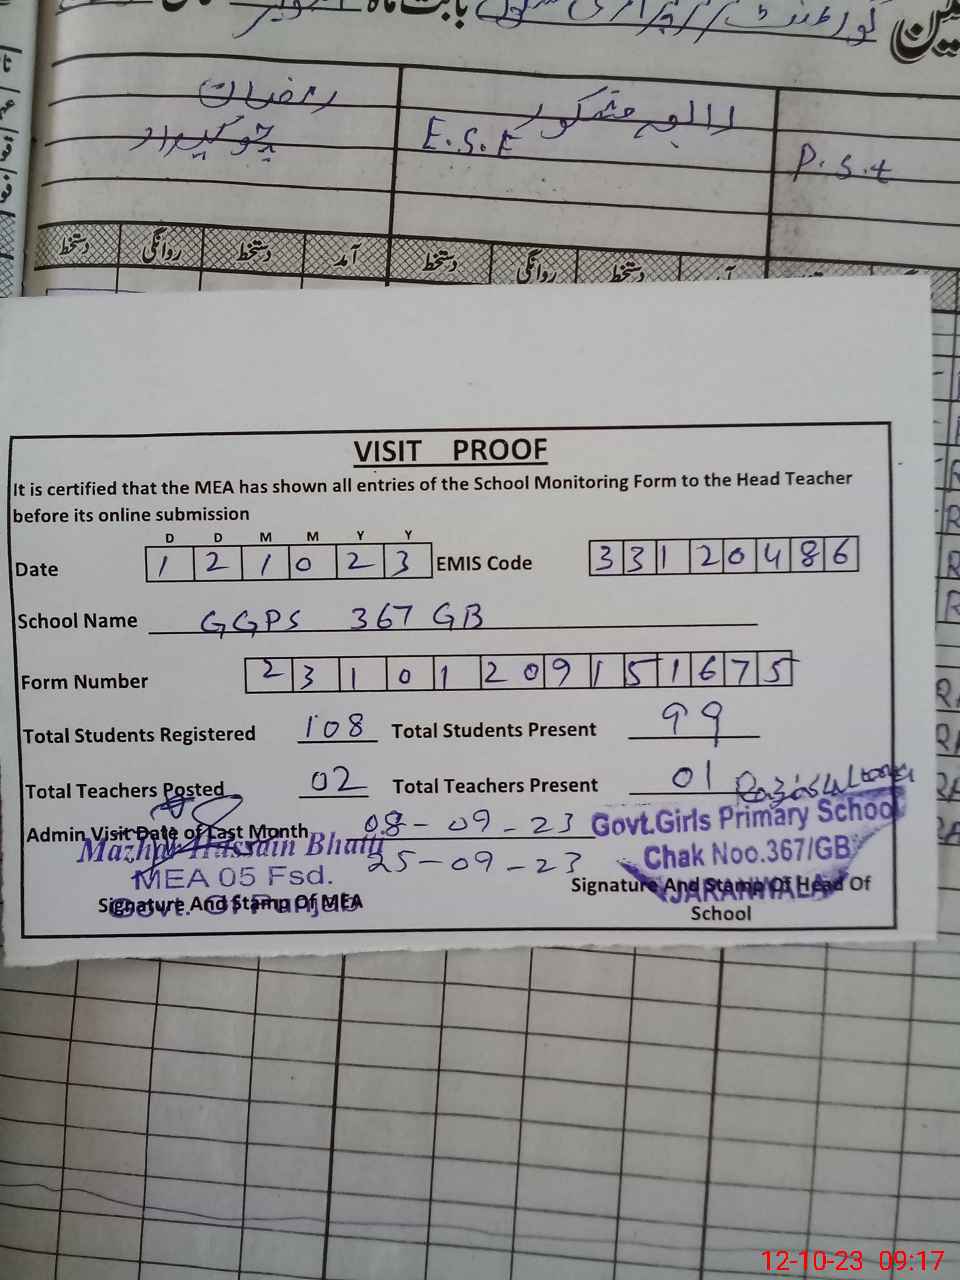 رمضان
چوکیدار
E.S.E
P.S.t
دستخط روانگی دستخط آمد دستخط روانگی دستخط
VISIT PROOF
It is certified that the MEA has shown all entries of the School Monitoring Form to the Head Teacher
before its online submission
D D M M Y Y
Date 1 2 1 0 2 3 EMIS Code 3 3 1 2 0 4 8 6
School Name GGPS 367 GB
Form Number 2 3 1 0 1 2 0 9 1 5 1 6 7 5
Total Students Registered 108 Total Students Present 99
Total Teachers Posted 02 Total Teachers Present 01
Admin Visit Date of Last Month 08-09-23
25-09-23
Mazhar Hussain Bhatti
MEA 05 Fsd.
Govt. Of Punjab
Signature And Stamp Of MEA
Govt.Girls Primary School
Chak Noo.367/GB
JARANWALA
Signature And Stamp Of Head Of
School
12-10-23 09:17